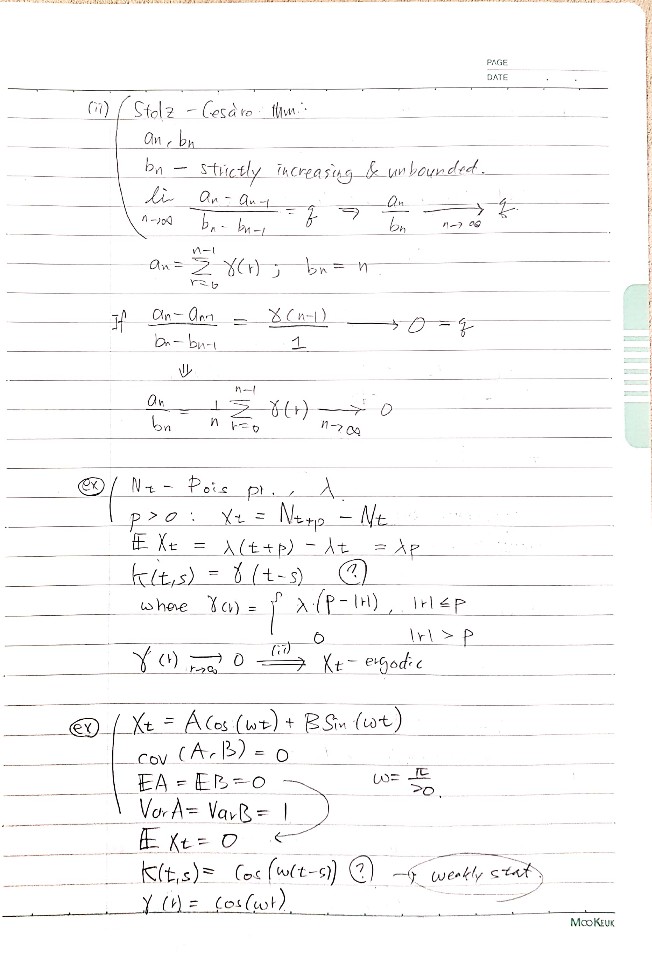 PAGE
DATE . .
(ii) Stolz - Cesàro thm:
an, bn
bn - strictly increasing & unbounded.
li n→∞ (an - an-1)/(bn - bn-1) = q ⇒ an/bn →n→∞ q
an = Σ_{r=0}^{n-1} γ(r) ; bn = n
If (an - an-1)/(bn - bn-1) = γ(n-1)/1 → 0 = q
⇓
an/bn = 1/n Σ_{r=0}^{n-1} γ(r) →n→∞ 0
ex Nt - Pois pr., λ
p > 0 : Xt = Nt+p - Nt
E Xt = λ(t+p) - λt = λp
K(t,s) = γ(t-s) ?
where γ(r) = { λ·(p-|r|), |r| ≤ p
0 |r| > p
γ(r) →r→∞ 0 ⇒(ii) Xt - ergodic
ex Xt = A cos(wt) + B Sin(wt)
cov (A, B) = 0
EA = EB = 0 w = π/20.
Var A = Var B = 1
E Xt = 0
K(t,s) = cos(w(t-s)) ? → weakly stat
γ(r) = cos(wr)
MOOKEUK